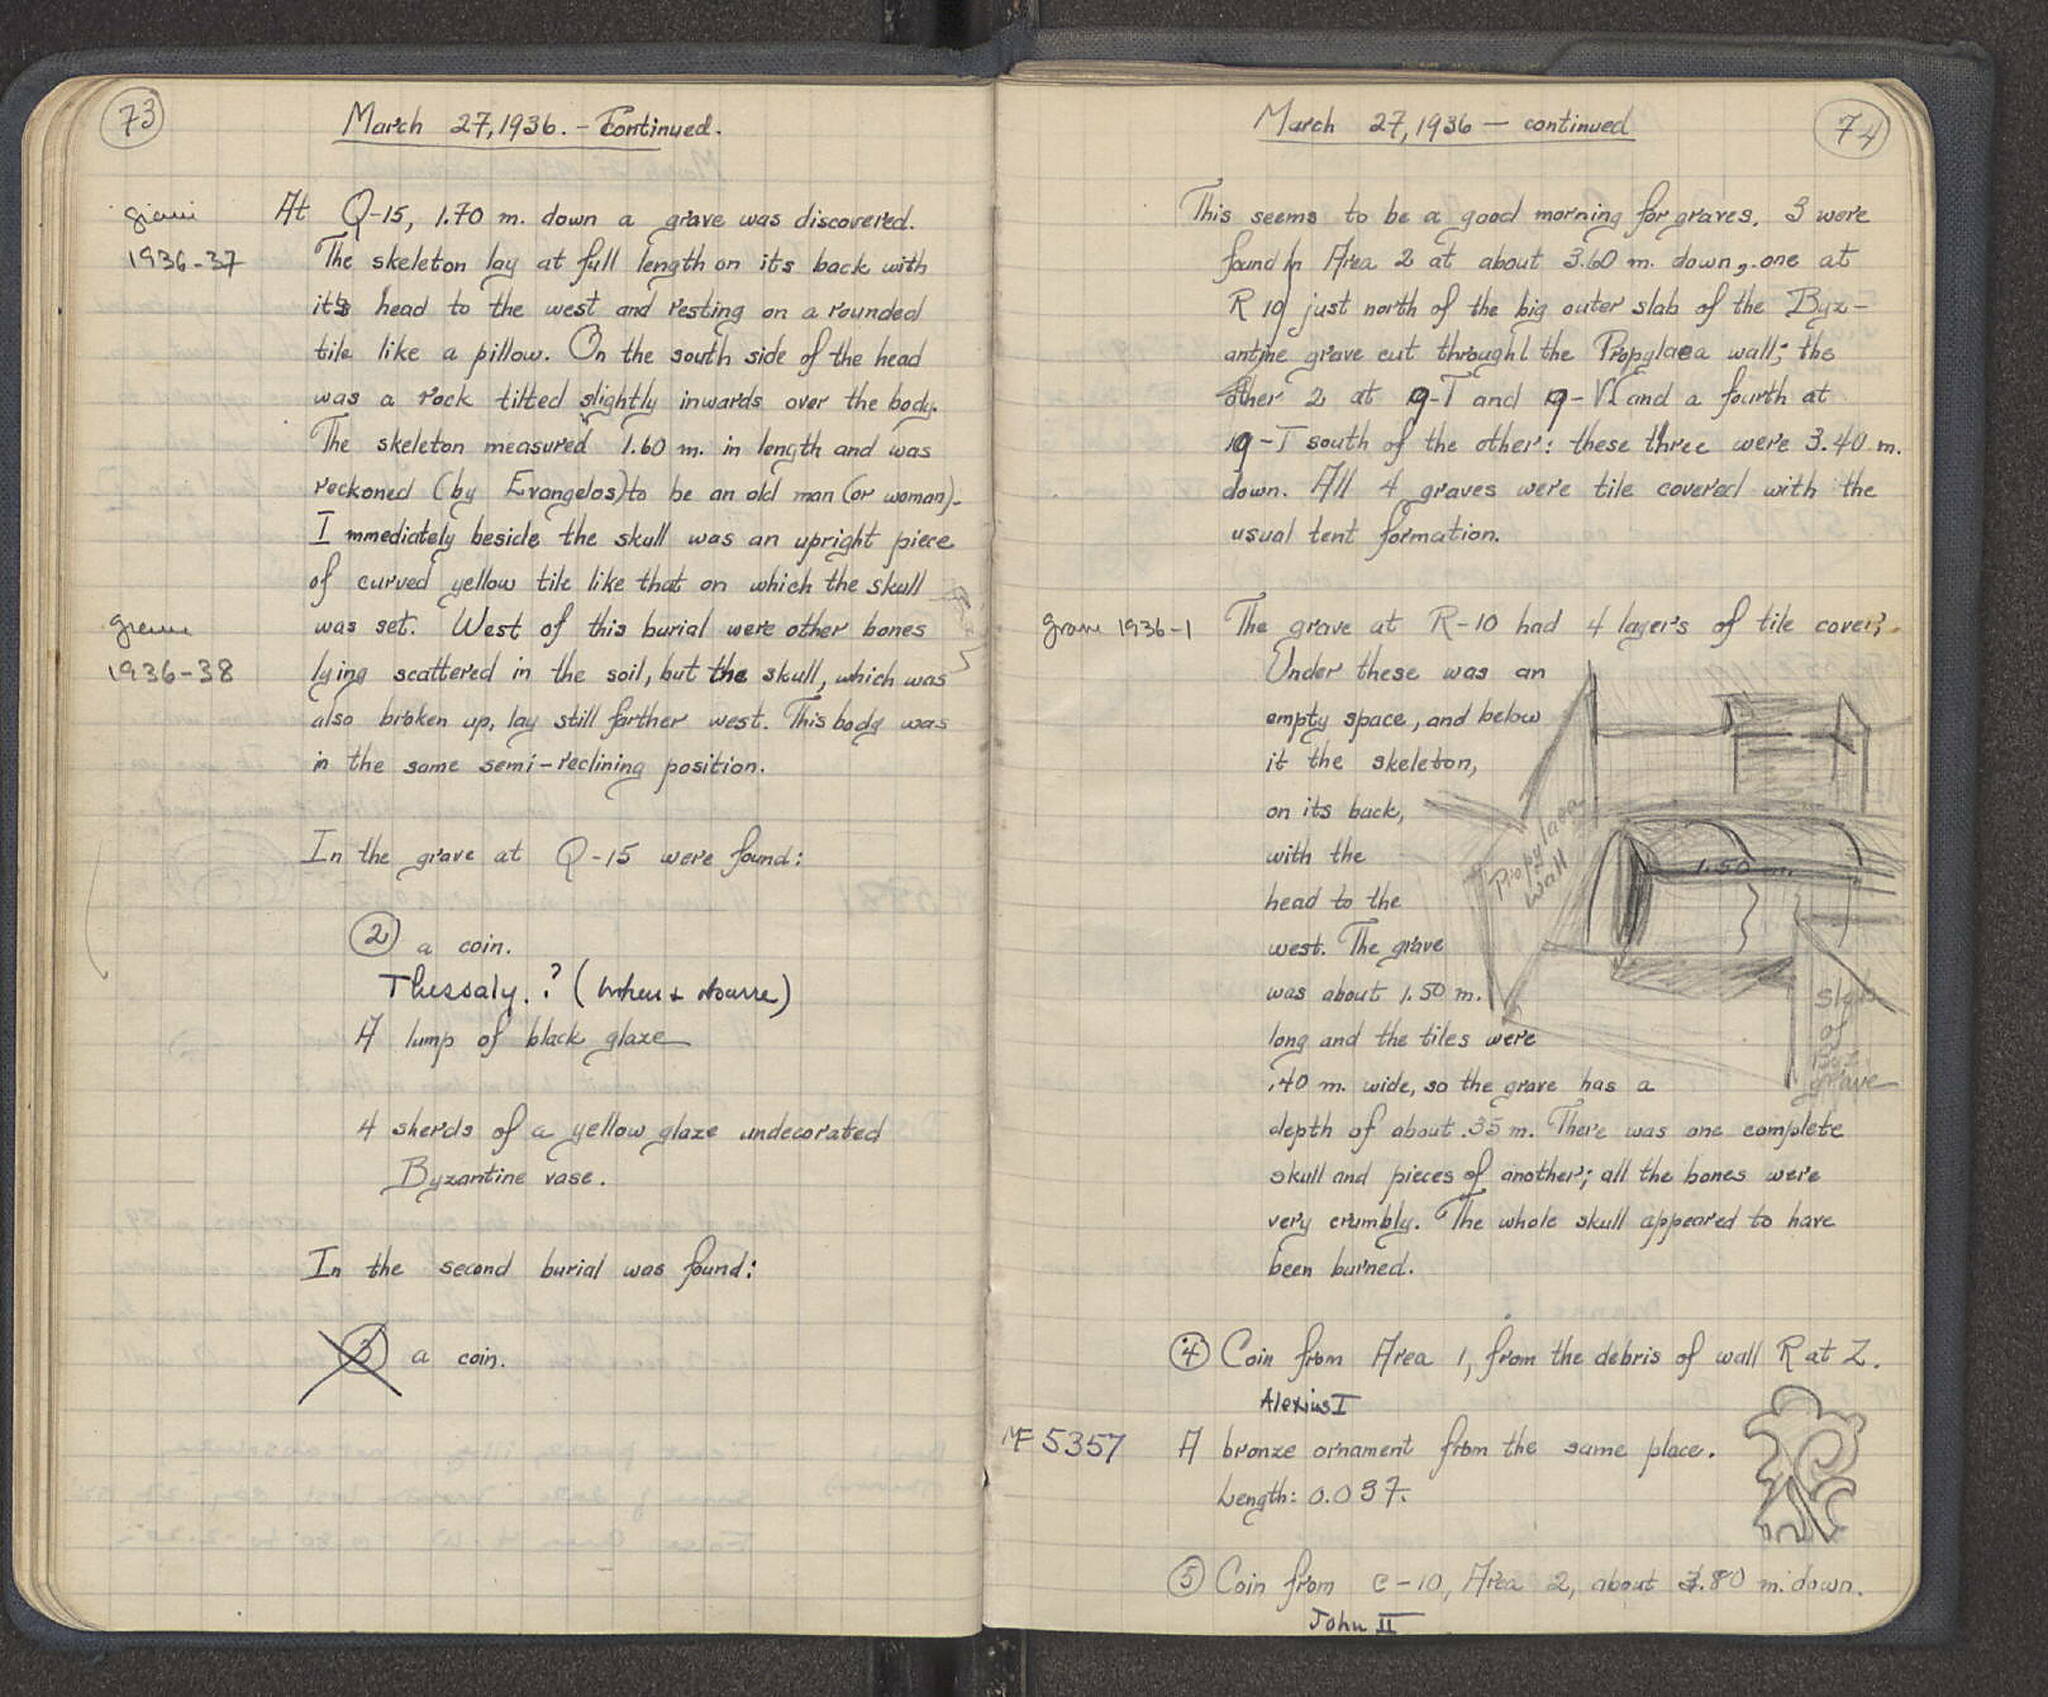 73
March 27, 1936. - Continued.
grave
1936-37
At Q-15, 1.70 m. down a grave was discovered.
The skeleton lay at full length on its back with
its head to the west and resting on a rounded
tile like a pillow. On the south side of the head
was a rock tilted slightly inwards over the body.
The skeleton measured 1.60 m. in length and was
reckoned (by Evangelos) to be an old man (or woman).
Immediately beside the skull was an upright piece
of curved yellow tile like that on which the skull
grave
1936-38
was set. West of this burial were other bones
lying scattered in the soil, but the skull, which was
also broken up, lay still farther west. This body was
in the same semi-reclining position.
In the grave at Q-15 were found:
2 a coin.
Thessaly.? (
A lump of black glaze
4 sherds of a yellow glaze undecorated
Byzantine vase.
In the second burial was found:
3 a coin.
March 27, 1936 — continued
74
This seems to be a good morning for graves. 3 were
found in Area 2 at about 3.60 m. down, one at
R 10 just north of the big outer slab of the Byz-
antine grave cut through the Propylaea wall; the
other 2 at and and a fourth at
south of the other: these three were 3.40 m.
down. All 4 graves were tile covered with the
usual tent formation.
grave 1936-1
The grave at R-10 had 4 layers of tile cover.
Under these was an
empty space, and below
it the skeleton,
on its back,
with the
head to the
west. The grave
was about 1.50 m.
long and the tiles were
.40 m. wide, so the grave has a
depth of about .35 m. There was one complete
skull and pieces of another; all the bones were
very crumbly. The whole skull appeared to have
been burned.
Propylaea
wall
1.50 m.
Slab
of
Byz.
grave
4 Coin from Area 1, from the debris of wall R at Z.
Alexius I
MF 5357
A bronze ornament from the same place.
Length: 0.037.
5 Coin from C-10, Area 2, about .80 m. down.
John II